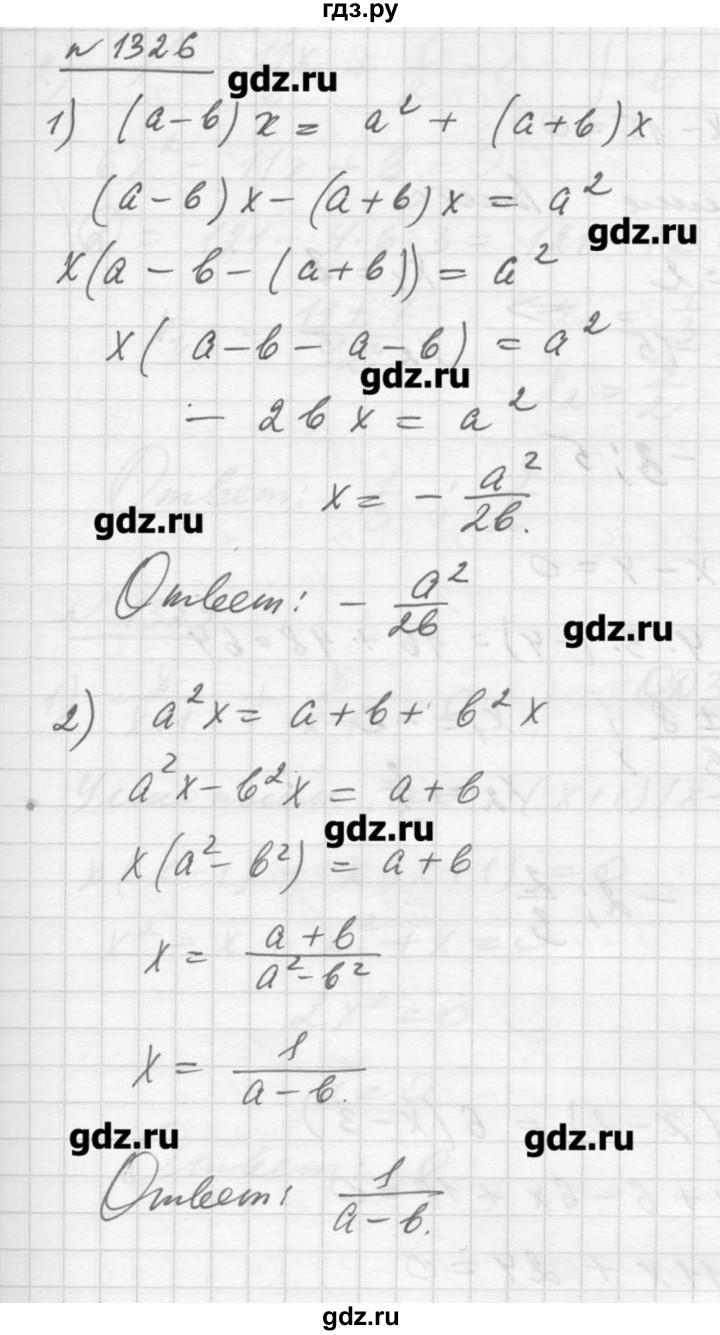 гдз.ру
№ 1326
gdz.ru
1) (a-в)x = a² + (a+в)x
(a-в)x-(a+в)x = a²
gdz.ru
x(a-в-(a+в)) = a²
x(a-в-a-в) = a²
gdz.ru
-2вx = a²
x = - a²/2в.
gdz.ru
Ответ: - a²/2в
gdz.ru
2) a²x = a+в+ в²x
a²x-в²x = a+в
gdz.ru
x(a²-в²) = a+в
x = a+в/a²-в²
x = 1/a-в.
gdz.ru gdz.ru
Ответ: 1/a-в.
gdz.ru